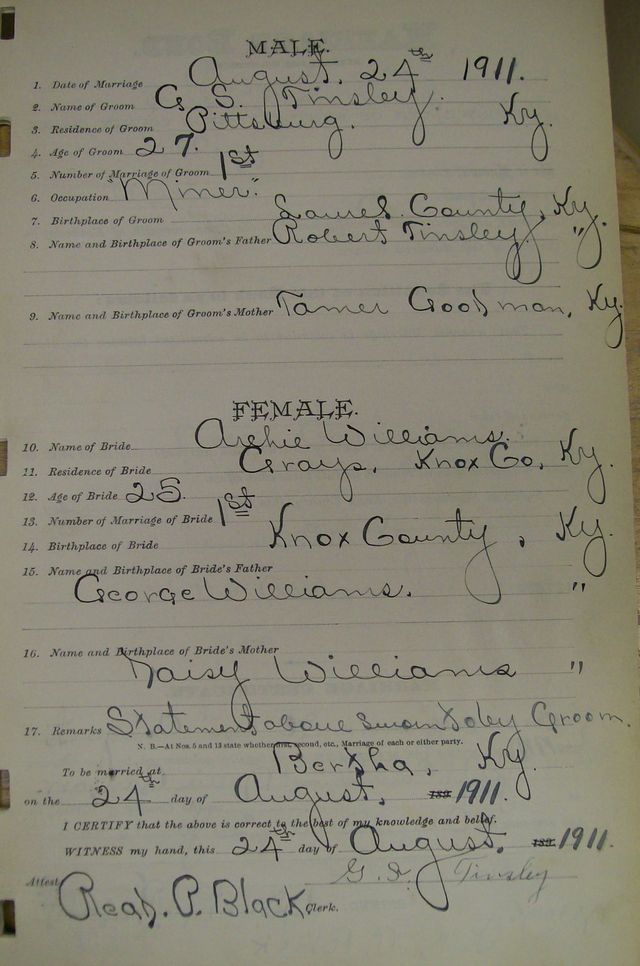 MALE.
1. Date of Marriage August. 24th 1911.
2. Name of Groom G S. Tinsley.
3. Residence of Groom Pittsburg. Ky.
4. Age of Groom 27.
5. Number of Marriage of Groom 1st
6. Occupation "Miner".
7. Birthplace of Groom Laurel County, Ky.
8. Name and Birthplace of Groom's Father Robert Tinsley. "
9. Name and Birthplace of Groom's Mother Tamer Goodman, Ky.
FEMALE.
10. Name of Bride Archie Williams.
11. Residence of Bride Grays, Knox Co, Ky.
12. Age of Bride 25.
13. Number of Marriage of Bride 1st
14. Birthplace of Bride Knox County, Ky.
15. Name and Birthplace of Bride's Father
George Williams. "
16. Name and Birthplace of Bride's Mother
Daisy Williams "
17. Remarks Statement above sworn to by Groom.
N. B.—At Nos. 5 and 13 state whether first, second, etc., Marriage of each or either party.
To be married at Bertha, Ky.
on the 24th day of August, 189 1911.
I CERTIFY that the above is correct to the best of my knowledge and belief.
WITNESS my hand, this 24th day of August. 189 1911.
G. S. Tinsley
Attest
Read. P. Black Clerk.